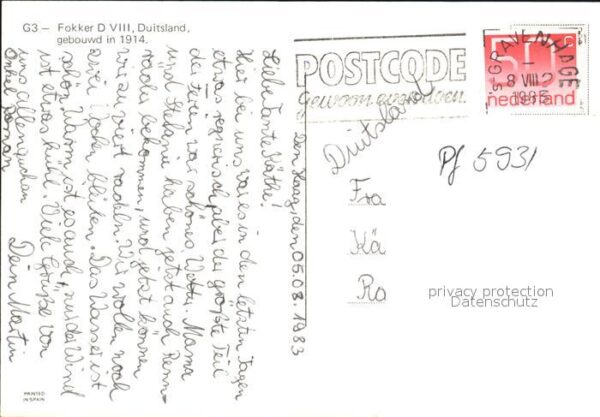 G3 – Fokker D VIII, Duitsland,
gebouwd in 1914.
den Haag, den 05.08.1983
Liebe Tante Käthe!
Hier bei uns war es in den letzten Tagen
etwas regnerisch, aber der größte Teil
der Ferien war schönes Wetter. Mama
und Stefanie haben jetzt auch Renn-
räder bekommen, und jetzt können
wir zu viert radeln. Wir wollen noch
zwei Wochen bleiben. Das Wasser ist
schön. Warm ist es auch, nur der Wind
ist etwas kühl. Viele Grüße von
uns allen, auch an
Onkel Roman
Dein Martin
POSTCODE
gewoon even doen.
's-GRAVENHAGE
8 VIII
50 c
nederland
Duitsland
Pf 5931
Fra
Kä
Ro
privacy protection
Datenschutz
PRINTED
IN SPAIN